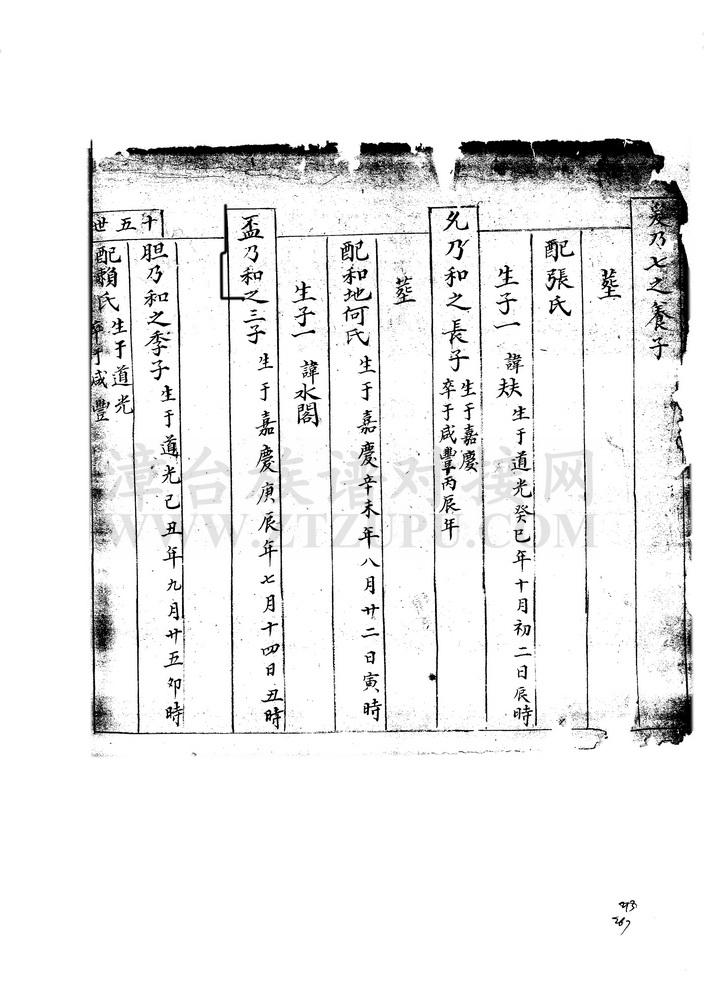 乃七之養子
塟
配張氏
生子一 諱夫 生于道光癸巳年十月初二日辰時
乃和之長子 生于嘉慶 卒于咸豐丙辰年
塟
配和地何氏 生于嘉慶辛未年八月廿二日寅時
生子一 諱水閣
盃乃和之三子 生于嘉慶庚辰年七月十四日丑時
胆乃和之季子 生于道光己丑年九月廿五卯時
十五世
配賴氏 生于道光 卒于咸豐
漳台族谱对接网
WWW.ZTZUPU.COM
267